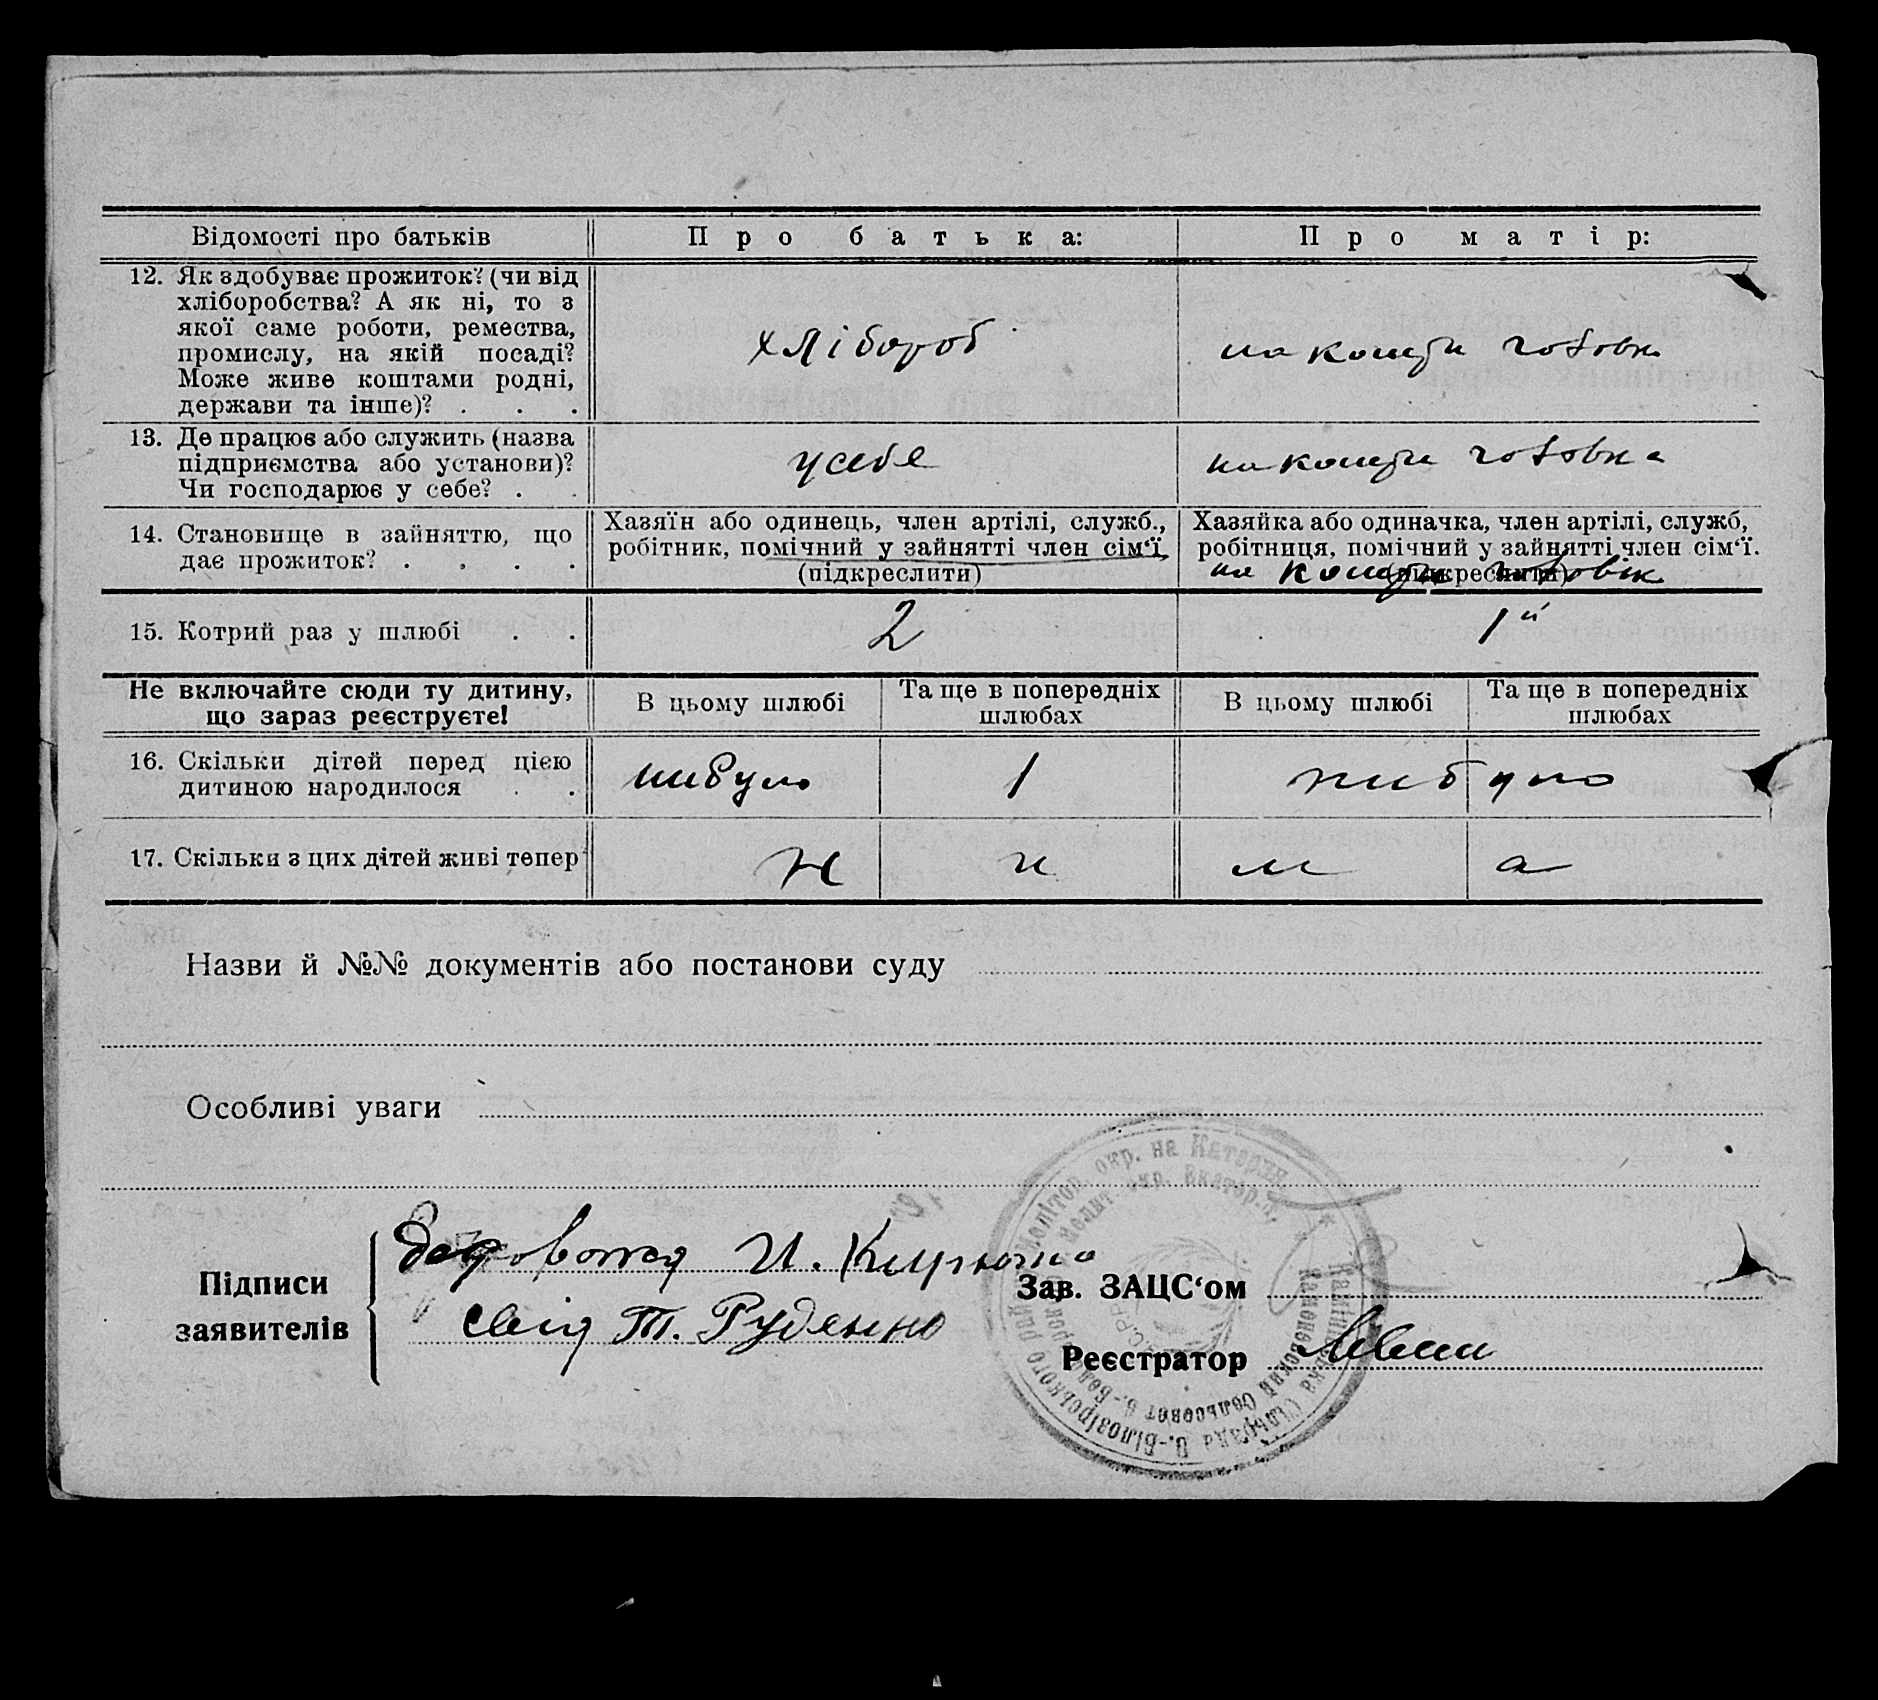 Відомості про батьків
Про батька:
Про матір:
12. Як здобуває прожиток? (чи від
хліборобства? А як ні, то з
якої саме роботи, ремества,
промислу, на якій посаді?
Може живе коштами родні,
держави та інше)? . . .
хлібороб
на кошти
13. Де працює або служить (назва
підприємства або установи)?
Чи господарює у себе? . .
усебе
на кошти
14. Становище в зайняттю, що
дає прожиток? . . . .
Хазяїн або одинець, член артілі, служб.,
робітник, помічний у зайнятті член сім‘ї
(підкреслити)
Хазяйка або одиначка, член артілі, служб,
робітниця, помічний у зайнятті член сім‘ї.
(підкреслити)
на кошти
15. Котрий раз у шлюбі . .
2
1й
Не включайте сюди ту дитину,
що зараз реєструєте!
В цьому шлюбі
Та ще в попередніх
шлюбах
В цьому шлюбі
Та ще в попередніх
шлюбах
16. Скільки дітей перед цією
дитиною народилося . .
нибуло
1
нибуло
17. Скільки з цих дітей живі тепер
н и м а
Назви й №№ документів або постанови суду
Особливі уваги
Підписи
заявителів
И.
Т. Руденко
Зав. ЗАЦС‘ом
Реєстратор